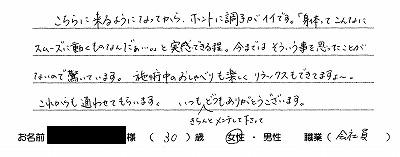 こちらに来るようになってから、ホントに調子がイイです。「身体ってこんなに
スムーズに動くものなんだぁぃ。」と実感できる程。今まではそういう事を思ったことが
ないので驚いています。施術中のおしゃべりも楽しくリラックスもできてますよ〜。
これからも通わせてもらいます。いつもどうもありがとうございます。
きちんとメンテして下さって
お名前 様 (30)歳 女性・男性 職業(会社員)